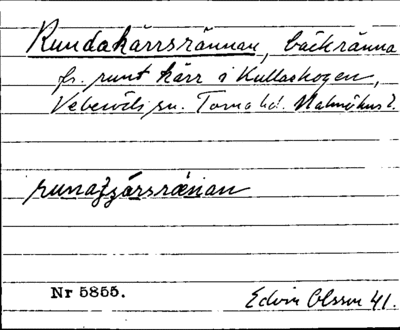 Rundakärrsrännan, bäckränna
fr. runt kärr i Kullaskogen,
Veberöds sn. Torna hd. Malmöhus l.
Nr 5855.
Edvin Olsson 41.